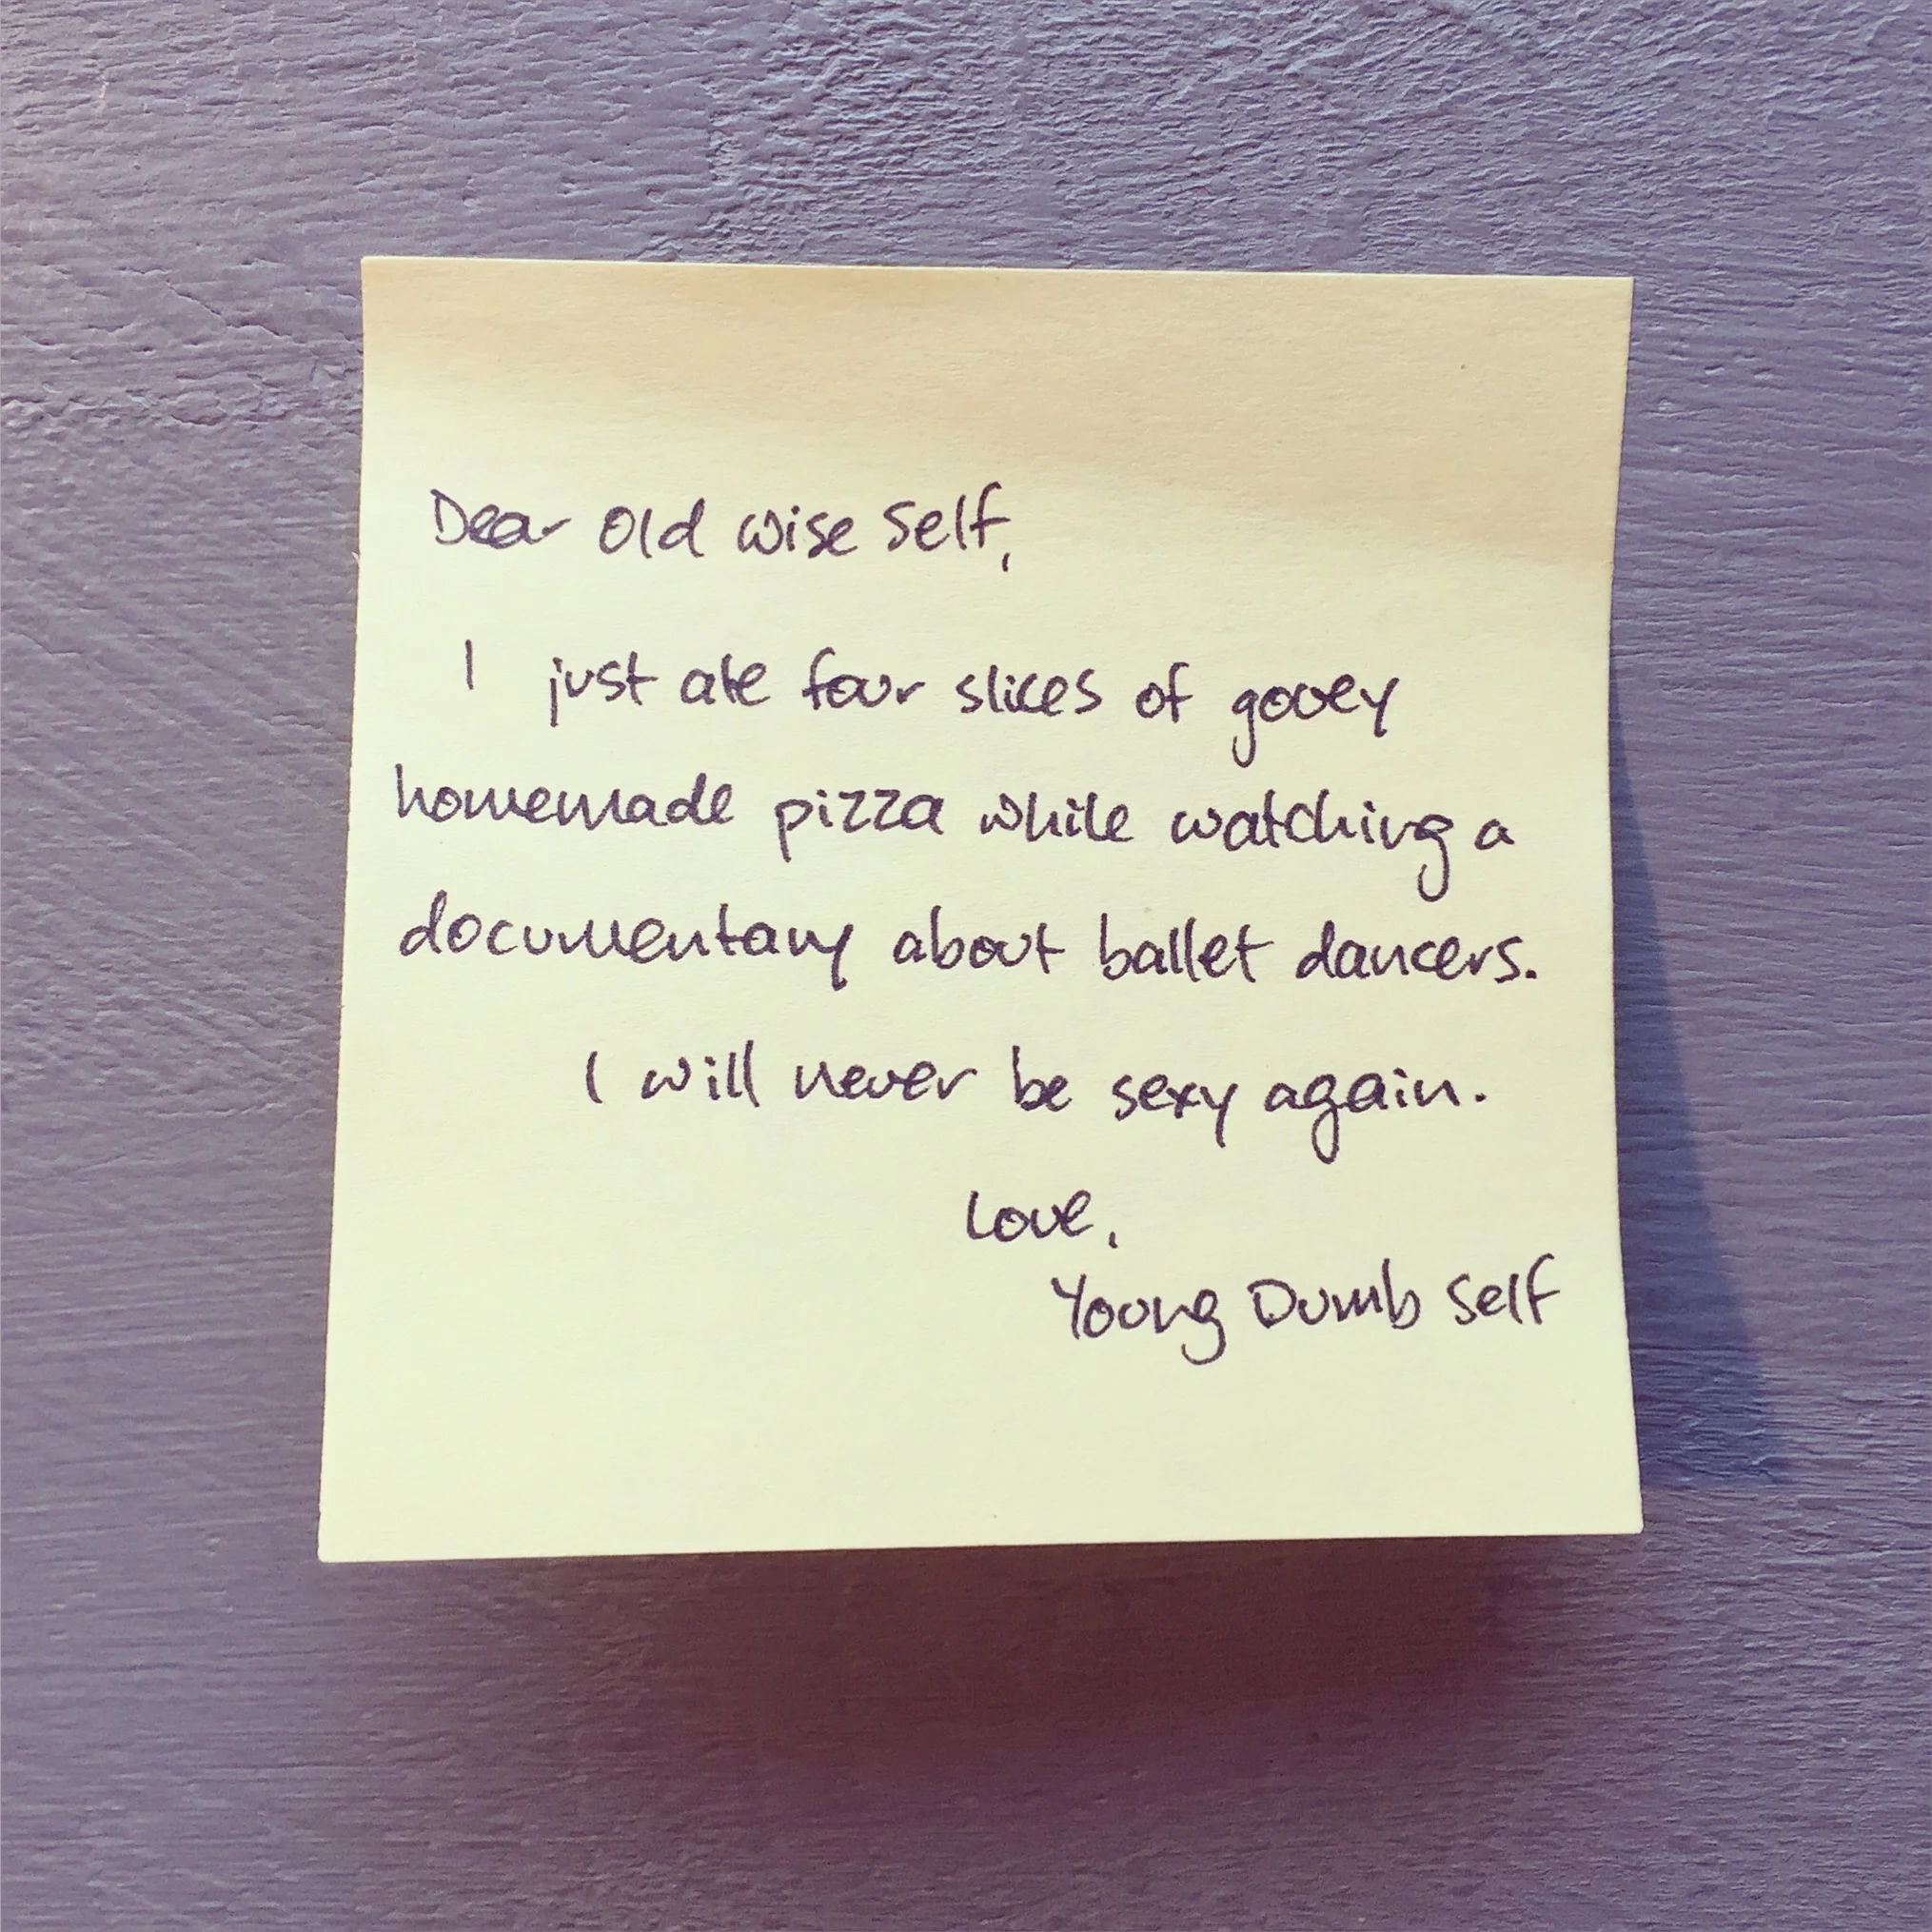 Dear Old Wise Self,
I just ate four slices of gooey
homemade pizza while watching a
documentary about ballet dancers.
I will never be sexy again.
Love,
Young Dumb Self